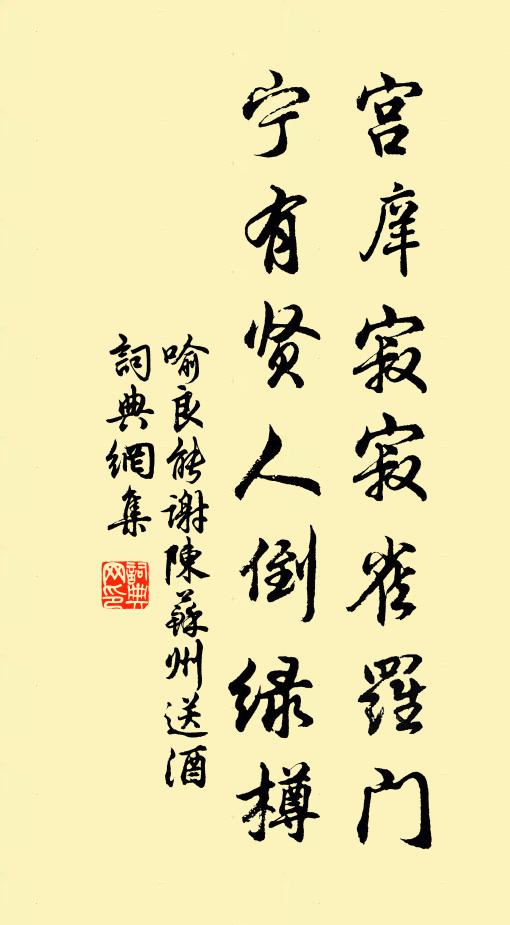 宫庠寂寂雀罗门
宁有贤人倒绿樽
喻良能谢陳蘇州送酒
詞典網集
詞典网印